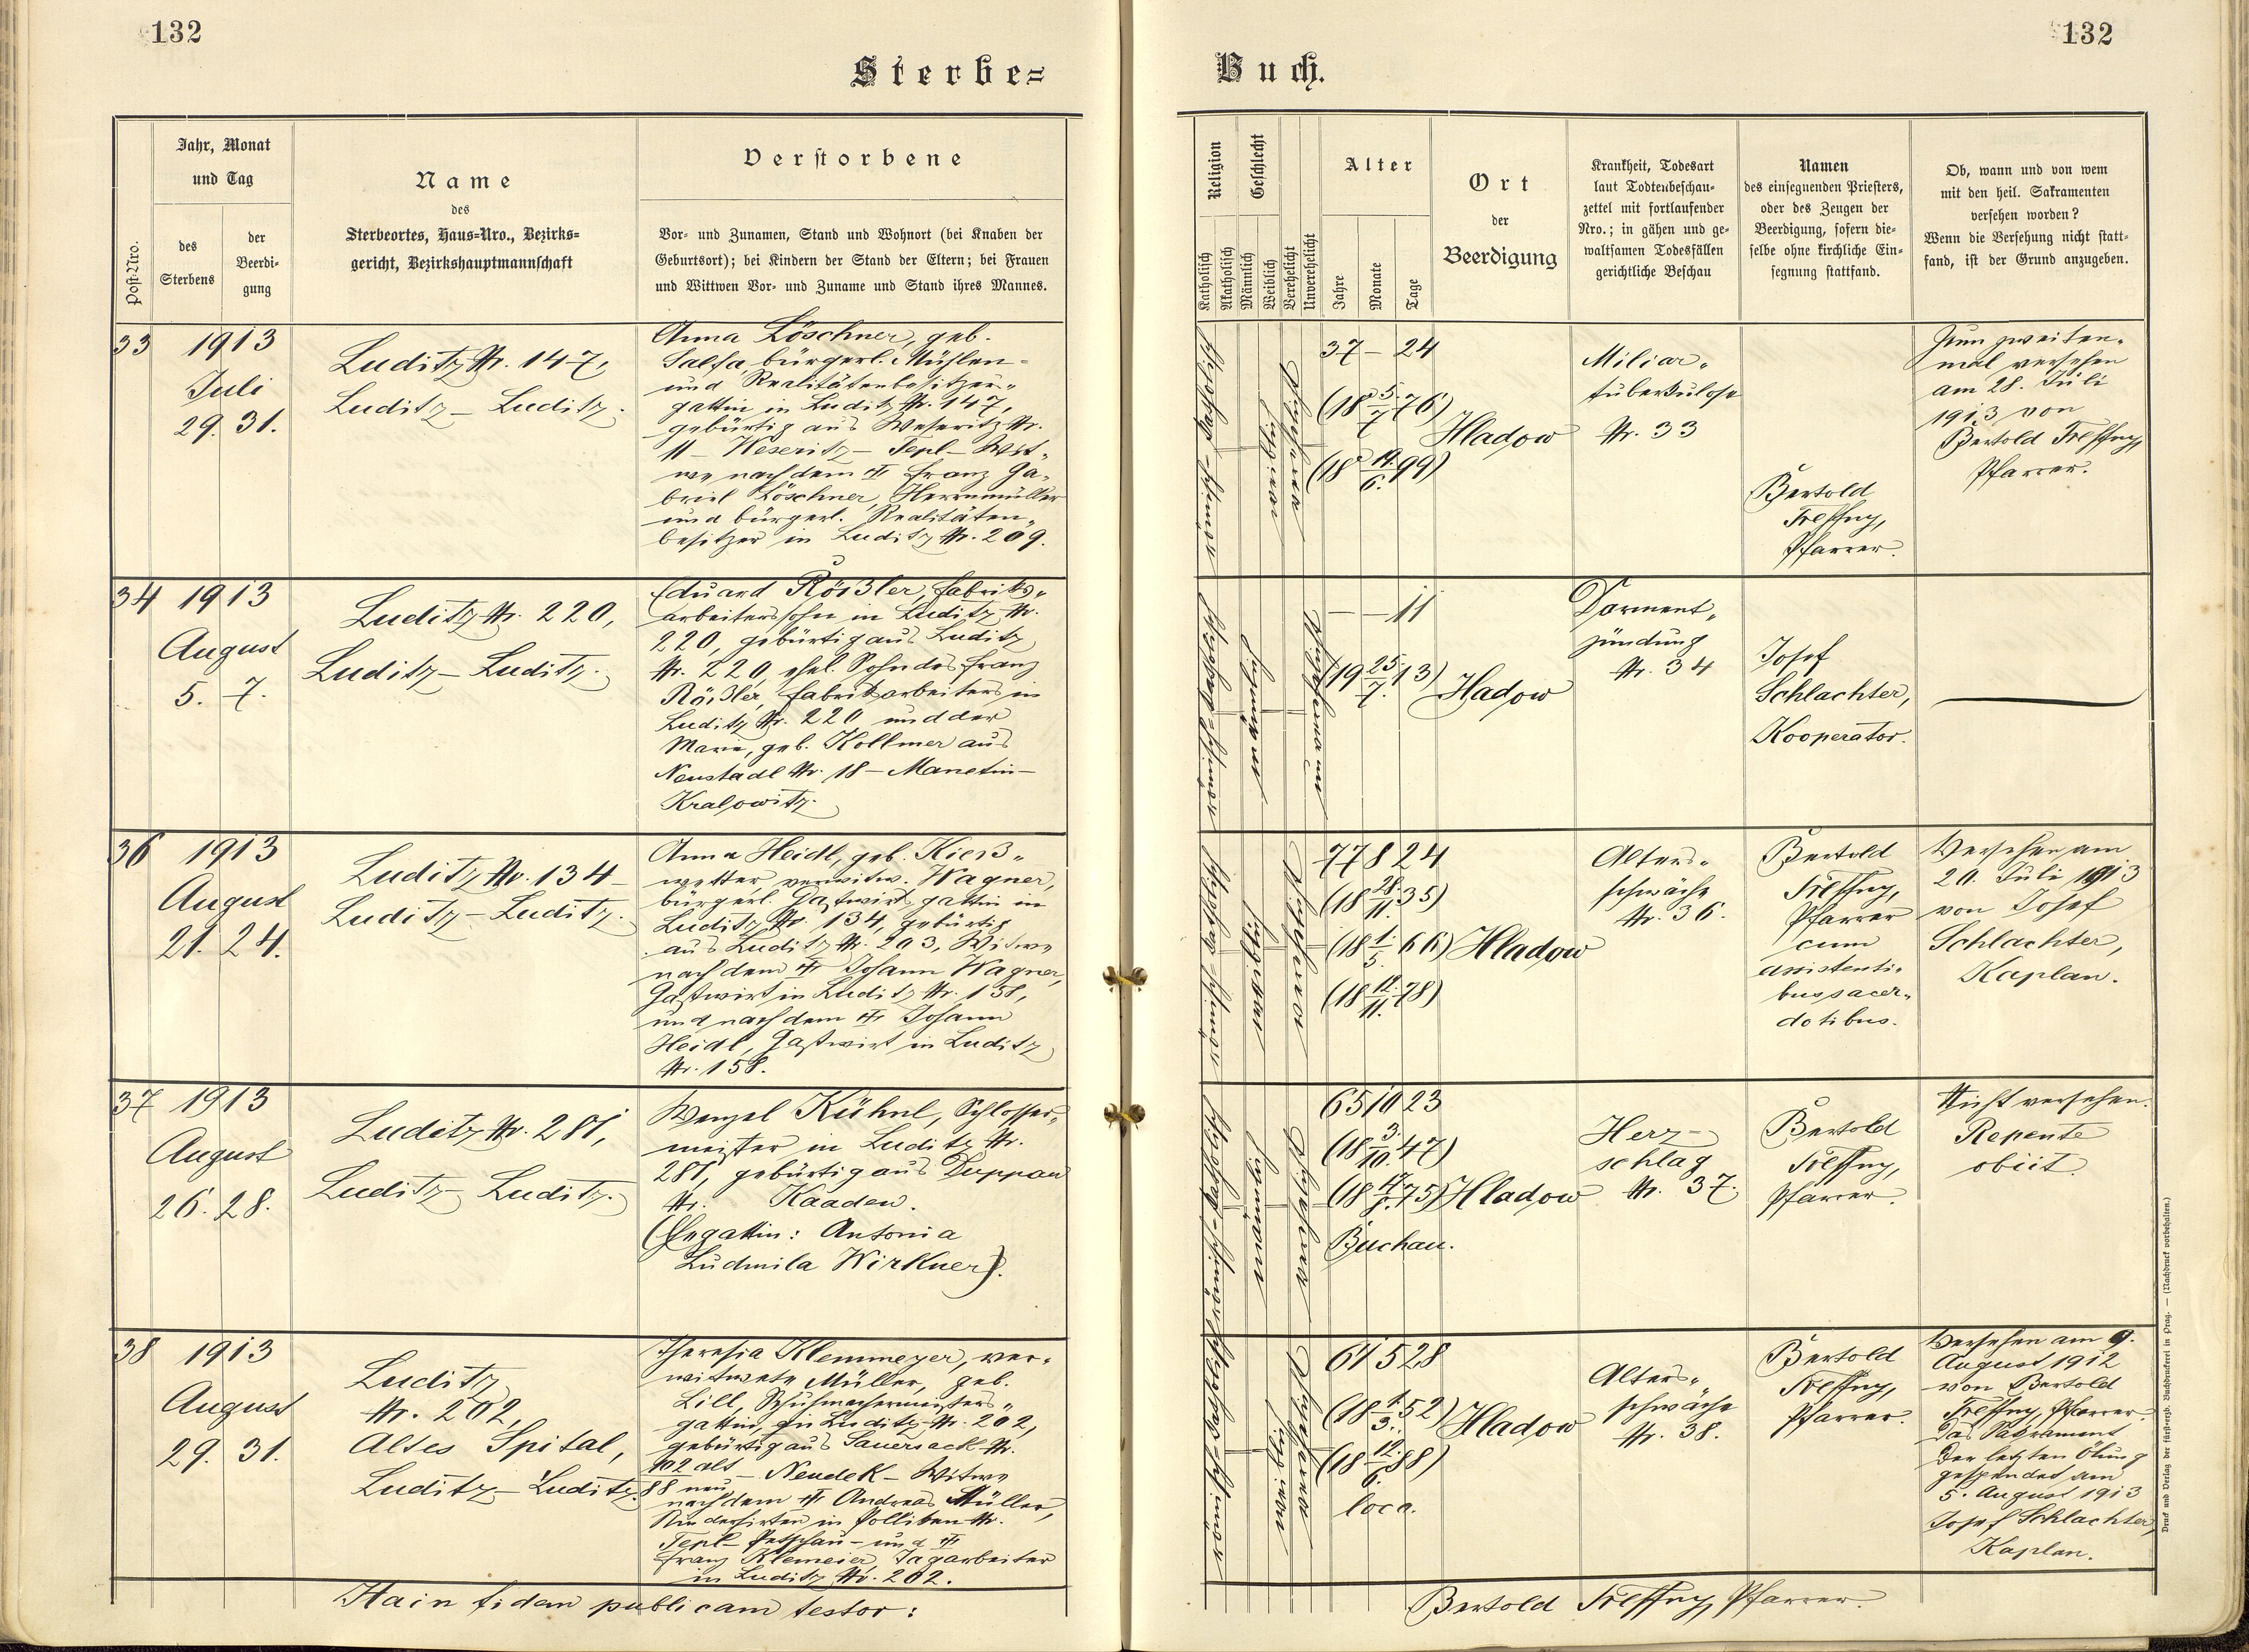 132
132
Sterbe=
Buch.
Post-Nro.
Jahr, Monat
und Tag
des
Sterbens
der
Beerdi-
gung
Name
des
Sterbeortes, Haus=Nro., Bezirks=
gericht, Bezirkshauptmannschaft
Verstorbene
Vor- und Zunamen, Stand und Wohnort (bei Knaben der
Geburtsort); bei Kindern der Stand der Eltern; bei Frauen
und Wittwen Vor- und Zuname und Stand ihres Mannes.
Religion
Katholisch
Akatholisch
Geschlecht
Männlich
Weiblich
Verehelicht
Unverehelicht
Alter
Jahre
Monate
Tage
Ort
der
Beerdigung
Krankheit, Todesart
laut Todtenbeschau-
zettel mit fortlaufender
Nro.; in gähen und ge-
waltsamen Todesfällen
gerichtliche Beschau
Namen
des einsegnenden Priesters,
oder des Zeugen der
Beerdigung, sofern die-
selbe ohne kirchliche Ein-
segnung stattfand.
Ob, wann und von wem
mit den heil. Sakramenten
versehen worden?
Wenn die Versehung nicht statt-
fand, ist der Grund anzugeben.
33
1913
Juli
29. 31.
Luditz Nr. 147,
Luditz – Luditz.
Anna Löschner, geb.
Salfa, bürgerl. Mühlen-
und Realitätenbesitzers-
gattin in Luditz Nr. 147,
gebürtig aus Weseritz Nr.
11 – Weseritz – Tepl – Wit-
we nach dem Franz Ga-
briel Löschner, Herrnmüller
und bürgerl. Realitäten-
besitzer in Luditz Nr. 209.
37 – 24
(18 5./7. 76)
(18 14./6. 99)
Hladow
Miliar-
tuberkulose
Nr. 33
Bertold
Treffny,
Pfarrer.
Zum zweiten-
mal versehen
am 28. Juli
1913 von
Bertold Treffny,
Pfarrer.
34
1913
August
5. 7.
Luditz Nr. 220,
Luditz – Luditz.
Eduard Rößler, Fabriks-
arbeiterssohn in Luditz Nr.
220, gebürtig aus Luditz
Nr. 220, ehel. Sohn des Franz
Rößler, Fabriksarbeiters in
Luditz Nr. 220 und der
Marie, geb. Kollmer aus
Neustadl Nr. 18 – Manetin –
Kralowitz.
– – 11
(19 25./7. 13)
Hladow
Darment-
zündung
Nr. 34
Josef
Schlachter,
Kooperator.
36
1913
August
21. 24.
Luditz Nr. 134 –
Luditz – Luditz.
Anna Heidl, geb. Kieß-
wetter, verwitw. Wagner,
bürgerl. Gastwirtsgattin in
Luditz Nr. 134, gebürtig
aus Luditz Nr. 203, Witwe
nach dem Johann Wagner,
Gastwirt in Luditz Nr. 158,
und nach dem Johann
Heidl, Gastwirt in Luditz
Nr. 158.
77 8 24
(18 28./11. 35)
(18 1./5. 66)
(18 12./11. 78)
Hladow
Alters-
schwäche
Nr. 36.
Bertold
Treffny,
Pfarrer
cum
assistenti-
bus sacer-
dotibus.
Versehen am
20. Juli 1913
von Josef
Schlachter,
Kaplan.
37
1913
August
26. 28.
Luditz Nr. 281,
Luditz – Luditz.
Wenzel Kühnl, Schlosser-
meister in Luditz Nr.
281, gebürtig aus Duppau
Nr. Kaaden.
(Ehegattin: Antonia
Ludmila Wirkner).
65 10 23
(18 3./10. 47)
Buchau.
Hladow
Herz-
schlag
Nr. 37.
Bertold
Treffny,
Pfarrer.
Nicht versehen.
Repente
obiit
38
1913
August
29. 31.
Luditz
Nr. 202,
Altes Spital,
Luditz – Luditz.
Theresia Klemmeyer, ver-
witwete Müller, geb.
Lill, Schuhmachermeisters-
gattin in Luditz Nr. 202,
gebürtig aus Sauersack Nr.
102 alt
88 neu – Neudek – Witwe
nach dem Andreas Müller,
Rinderhirten in Polliken Nr.
Tepl – Petschau – und
Franz Klemeier, Tagarbeiter
in Luditz Nr. 202.
61 5 28
(18 1./3. 52)
(18 12./6. 88)
loco.
Hladow
Alters-
schwäche
Nr. 38.
Bertold
Treffny,
Pfarrer.
Versehen am 9.
August 1912
von Bertold
Treffny, Pfarrer.
Das Sakrament
der letzten Ölung
gespendet am
5. August 1913
Josef Schlachter,
Kaplan.
Hain fidem publicam testor:
Bertold Treffny, Pfarrer.
Druck und Verlag der fürst-erzb. Buchdruckerei in Prag. — (Nachdruck vorbehalten.)